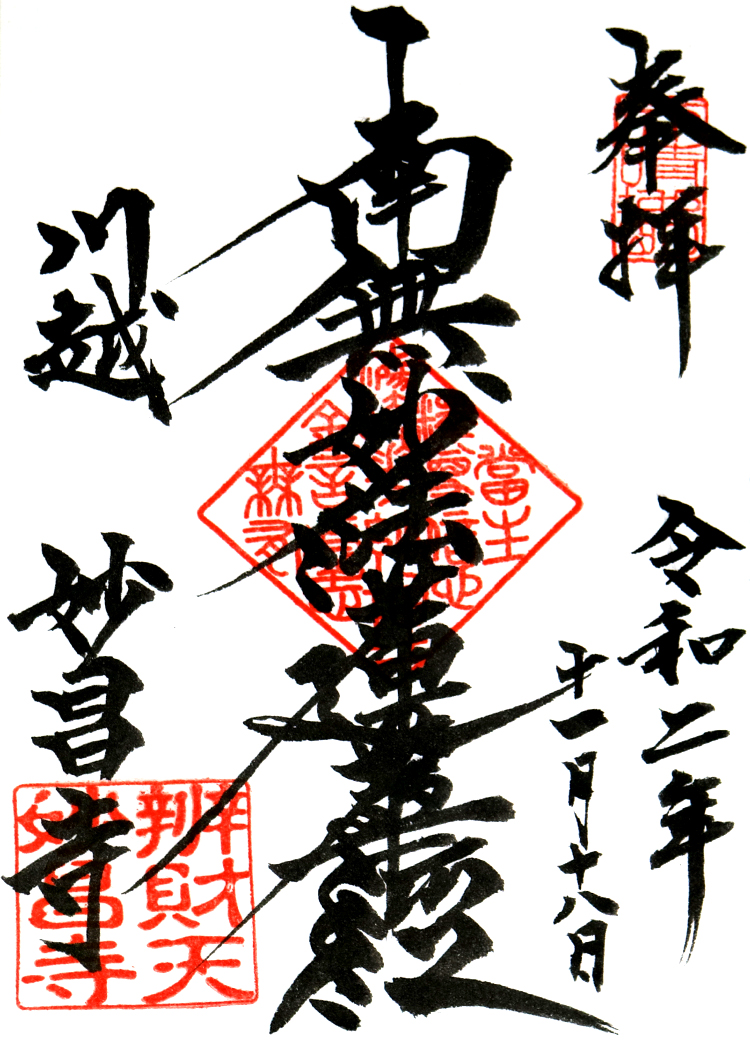 奉拝
令和二年
十一月十八日
南無妙法蓮華経
川越
妙昌寺
辨財天
妙昌寺